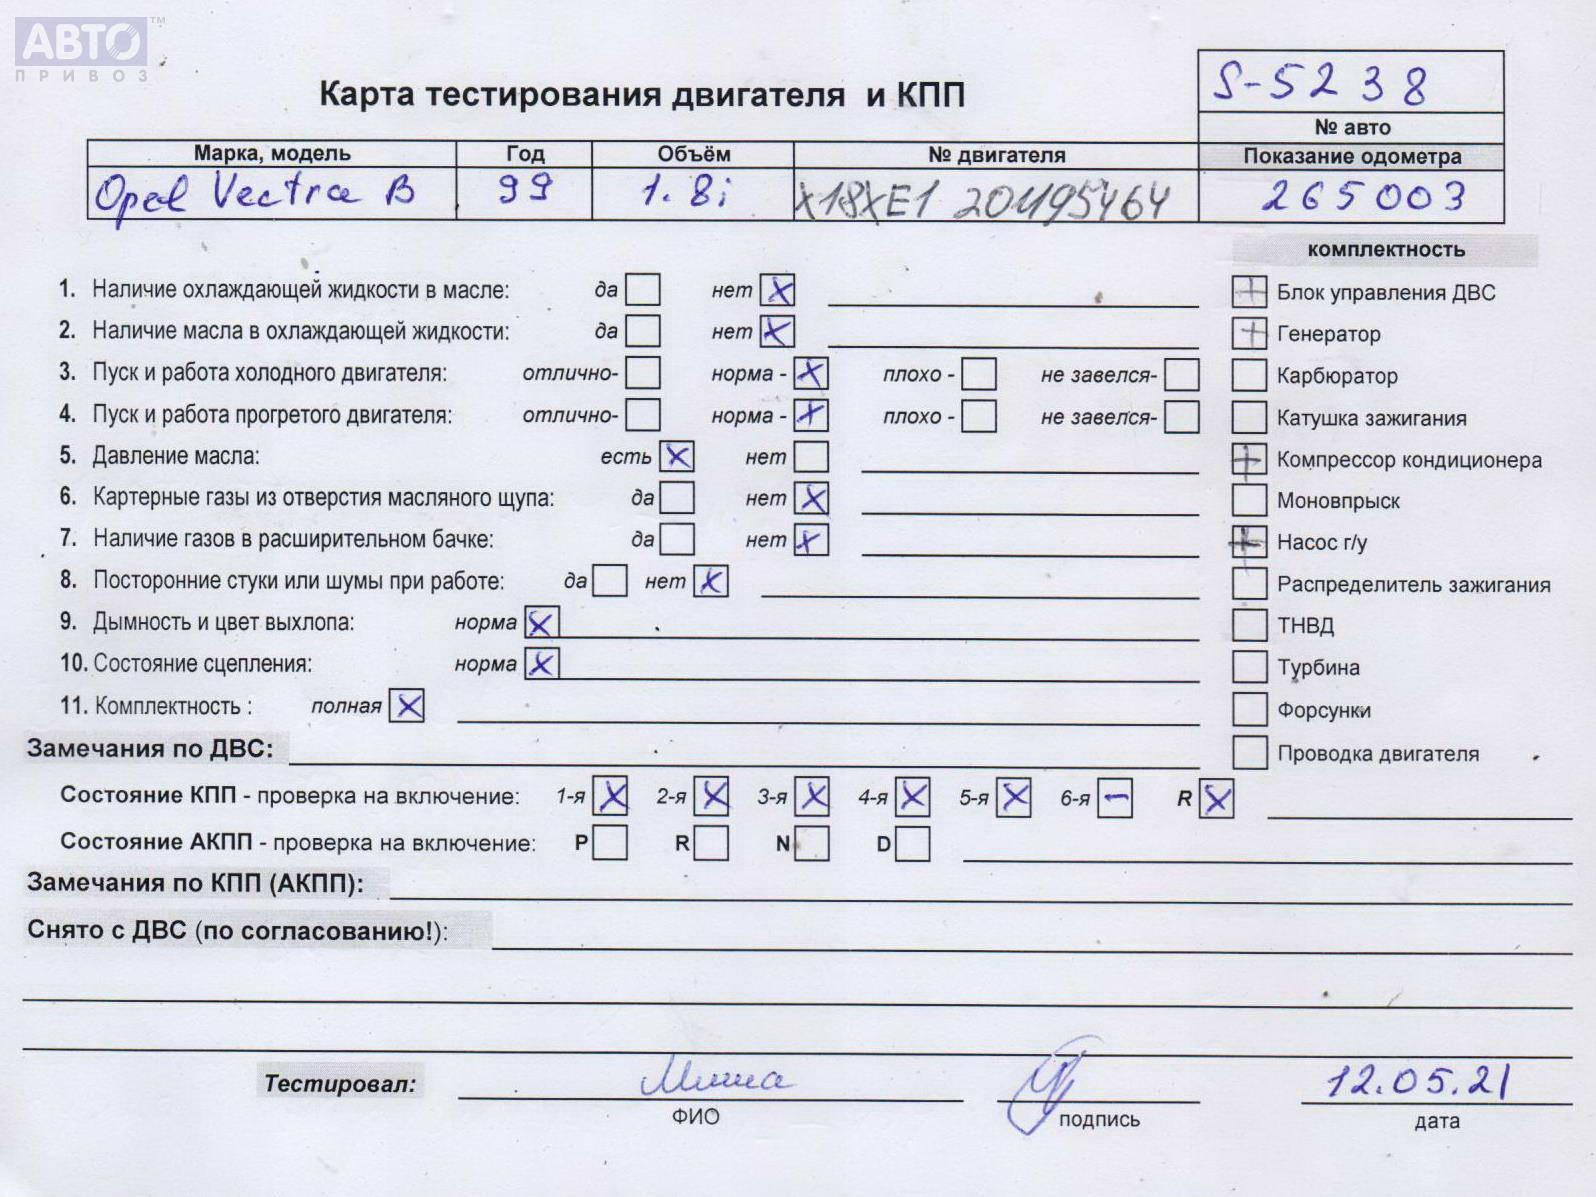 АВТО™
ПРИВОЗ
Карта тестирования двигателя и КПП
S-5238
№ авто
Марка, модель Год Объём № двигателя Показание одометра
Opel Vectra B 99 1.8i X18XE1 20U95464 265003
комплектность
1. Наличие охлаждающей жидкости в масле: да нет X
2. Наличие масла в охлаждающей жидкости: да нет X
3. Пуск и работа холодного двигателя: отлично- норма - X плохо - не завелся-
4. Пуск и работа прогретого двигателя: отлично- норма - X плохо - не завелся-
5. Давление масла: есть X нет
6. Картерные газы из отверстия масляного щупа: да нет X
7. Наличие газов в расширительном бачке: да нет X
8. Посторонние стуки или шумы при работе: да нет X
9. Дымность и цвет выхлопа: норма X
10. Состояние сцепления: норма X
11. Комплектность : полная X
+ Блок управления ДВС
+ Генератор
Карбюратор
Катушка зажигания
+ Компрессор кондиционера
Моновпрыск
+ Насос г/у
Распределитель зажигания
ТНВД
Турбина
Форсунки
Проводка двигателя
Замечания по ДВС:
Состояние КПП - проверка на включение: 1-я X 2-я X 3-я X 4-я X 5-я X 6-я - R X
Состояние АКПП - проверка на включение: P R N D
Замечания по КПП (АКПП):
Снято с ДВС (по согласованию!):
Тестировал: Миша 12.05.21
ФИО подпись дата